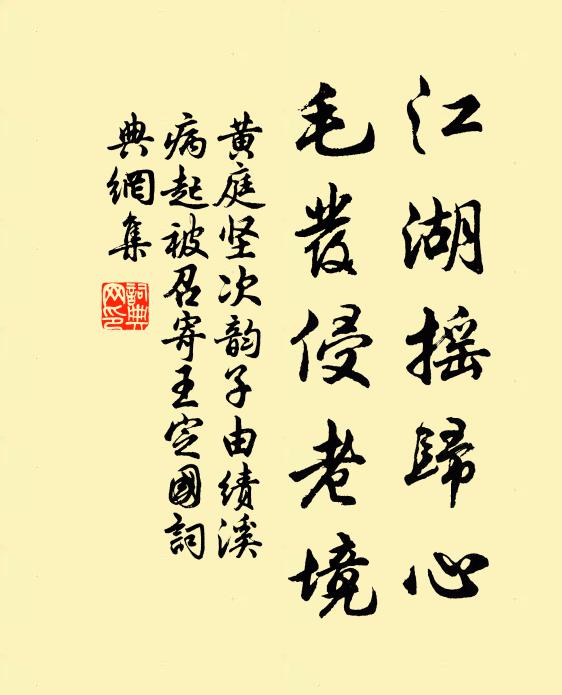 江湖摇歸心
毛發侵老境
黄庭坚次韵子由绩溪
病起被召寄王定國詞
典網集
詞典網印